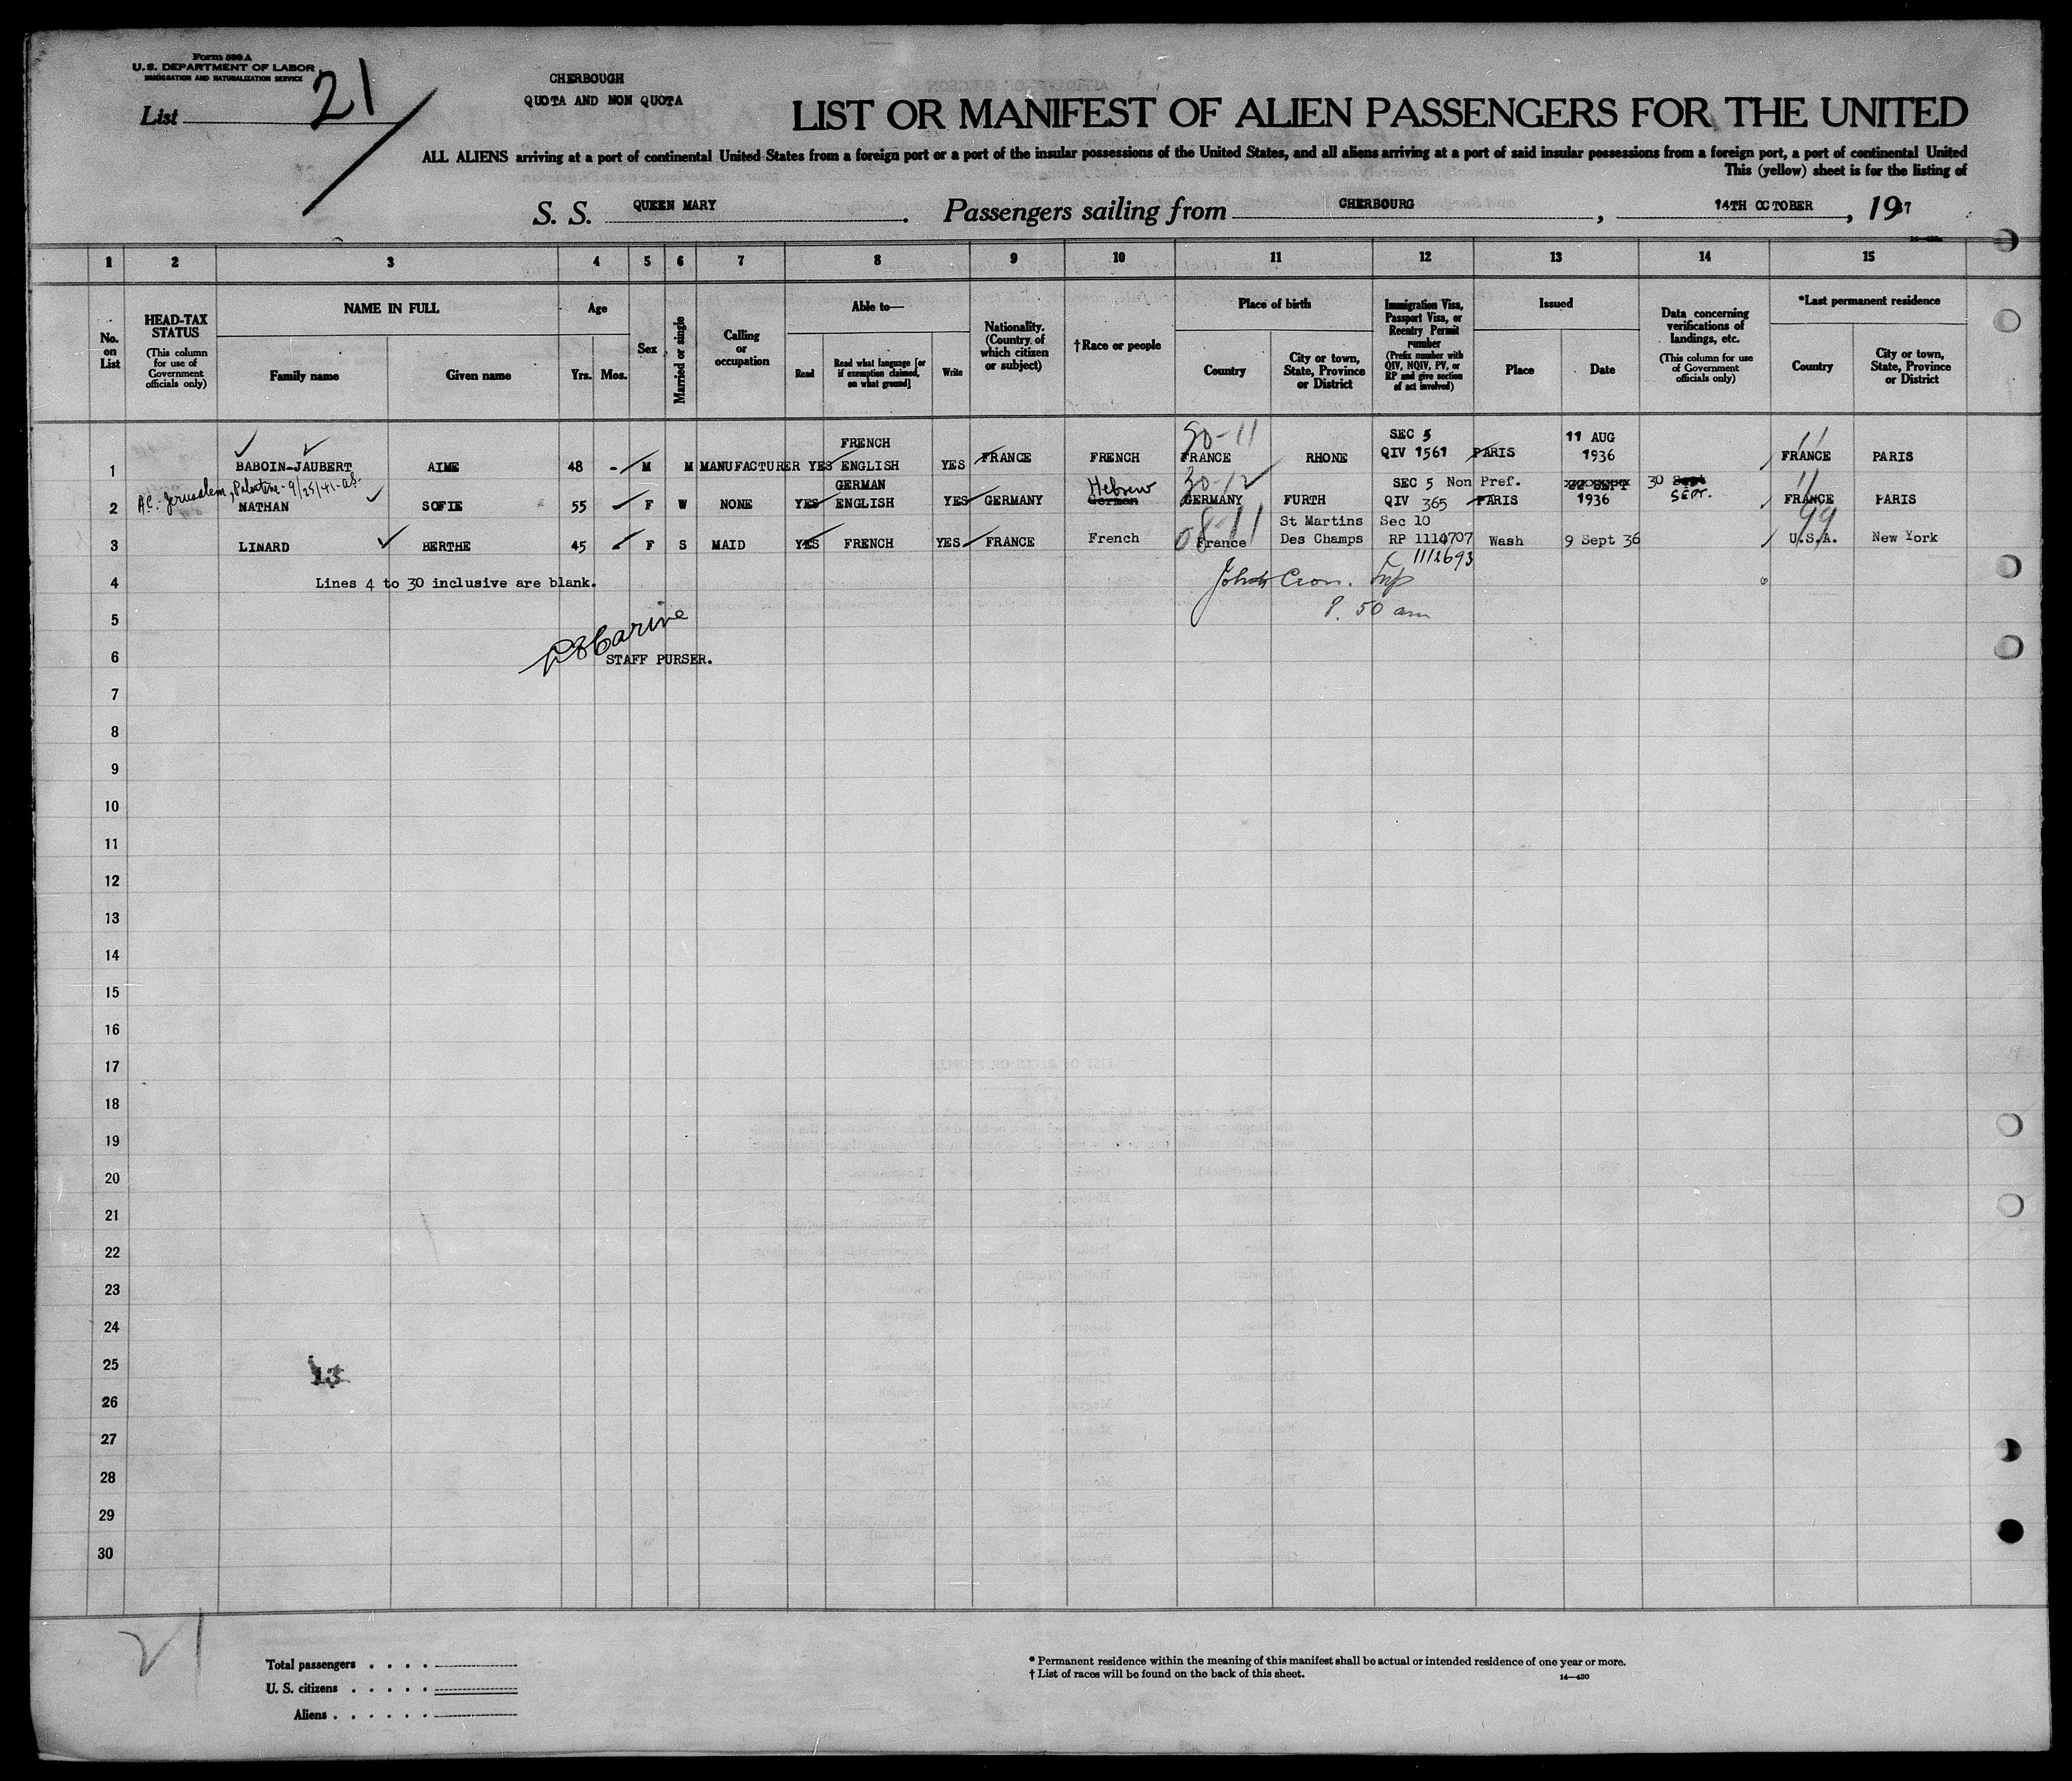 Form 500 A
U.S. DEPARTMENT OF LABOR
IMMIGRATION AND NATURALIZATION SERVICE
List 21
CHERBOUGH
QUOTA AND NON QUOTA
LIST OR MANIFEST OF ALIEN PASSENGERS FOR THE UNITED
ALL ALIENS arriving at a port of continental United States from a foreign port or a port of the insular possessions of the United States, and all aliens arriving at a port of said insular possessions from a foreign port, a port of continental United
This (yellow) sheet is for the listing of
S. S. QUEEN MARY. Passengers sailing from CHERBOURG, 14TH OCTOBER, 1937
1 2 3 4 5 6 7 8 9 10 11 12 13 14 15
No. on List
HEAD-TAX STATUS (This column for use of Government officials only)
NAME IN FULL
Family name
Given name
Age
Yrs.
Mos.
Sex
Married or single
Calling or occupation
Able to—
Read
Read what language [or if exemption claimed, on what ground]
Write
Nationality. (Country of which citizen or subject)
†Race or people
Place of birth
Country
City or town, State, Province or District
Immigration Visa, Passport Visa, or Reentry Permit number (Prefix number with QIV, NQIV, PV, or RP and give section of act involved)
Issued
Place
Date
Data concerning verifications of landings, etc. (This column for use of Government officials only)
*Last permanent residence
Country
City or town, State, Province or District
FRENCH 30-11 SEC 5 11 AUG 11
1 BABOIN-JAUBERT AIME 48 - M M MANUFACTURER YES ENGLISH YES FRANCE FRENCH FRANCE RHONE QIV 1561 PARIS 1936 FRANCE PARIS
A.C. Jerusalem, Palestine - 9/25/41 - GERMAN Hebrew 30-12 SEC 5 Non Pref. 22 SEPT 30 Sept 11
2 NATHAN SOFIE 55 F W NONE YES ENGLISH YES GERMANY German GERMANY FURTH QIV 365 PARIS 1936 SEPT. FRANCE PARIS
08-11 St Martins Sec 10 99
3 LINARD BERTHE 45 - F S MAID YES FRENCH YES FRANCE French France Des Champs RP 1114707 Wash 9 Sept 36 U.S.A. New York
1112693
4 Lines 4 to 30 inclusive are blank.
5 9.50 am
6 STAFF PURSER.
7
8
9
10
11
12
13
14
15
16
17
18
19
20
21
22
23
24
25 13
26
27
28
29
30
21
Total passengers . . . .
U. S. citizens . . . . .
Aliens . . . . . .
* Permanent residence within the meaning of this manifest shall be actual or intended residence of one year or more.
† List of races will be found on the back of this sheet.
14—430